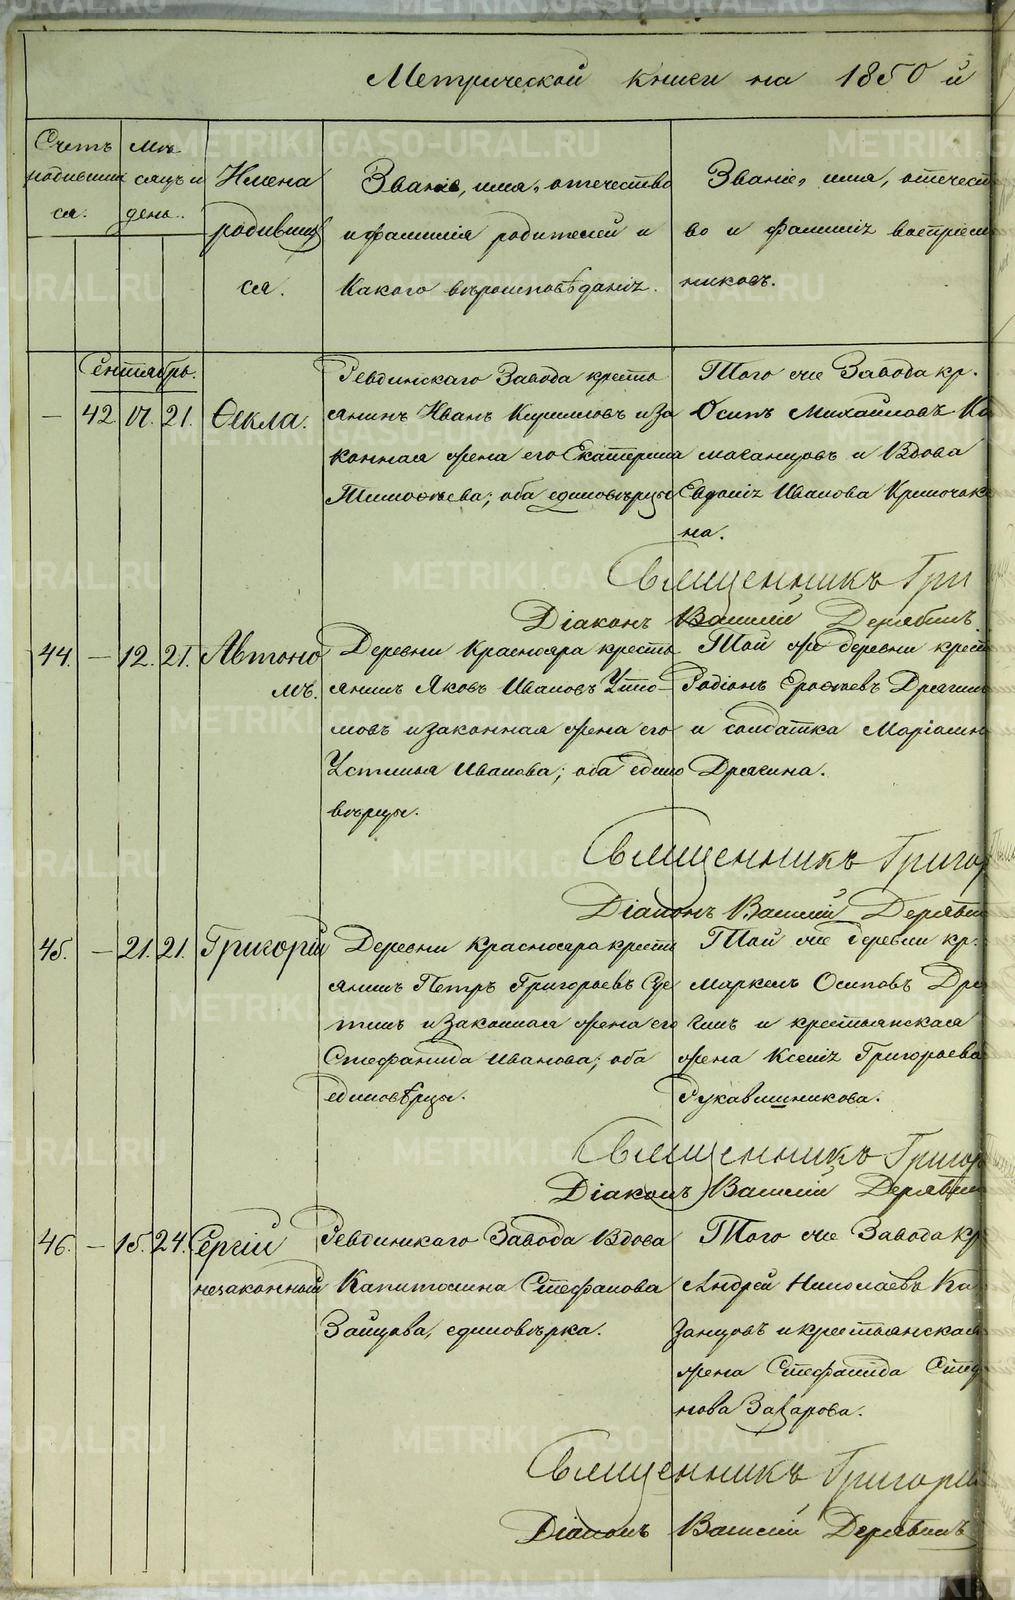 Метрической книги на 1850 й
Счетъ родивших ся.
Мѣ сяцъ и день.
Имена родивших ся.
Званіе, имя, отечество
и фамилія родителей и
какого вѣроисповѣданія.
Званіе, имя, отечест
во и фамилія воспріем
никовъ.
Сентябрь.
— 42 17. 21. Ѳекла.
Ревдинскаго Завода кресть
янинъ Иванъ Кирилловъ и за
конная жена его Екатерина
Тимоѳеева; оба единовѣрцы
Того же Завода кр.
Осипъ Михайловъ
и Вдова
Евдокія Иванова
на.
Священникъ Гри
Діаконъ Василій Дерябинъ
44. — 12. 21. Автоно
мъ.
Деревни Краснояра кресть
янинъ Яковъ Ивановъ Усто-
мовъ и законная жена его
Устинья Иванова; оба едино
вѣрцы.
Той же деревни крест
Родіонъ Ерофѣевъ Дрягин
и солдатка Маріанна
Дрягина.
Священникъ Григор
Діаконъ Василій Деряби
45. — 21. 21. Григорій
Деревни Краснояра крестья
янинъ Петръ Григорьевъ
и законная жена его
Стефанида Иванова; оба
единовѣрцы.
Той же деревни кр.
Маркелъ Осиповъ Дря
гинъ и крестьянская
жена Ксенія Григорьева
Рукавишникова.
Священникъ Григор
Діаконъ Василій Деряби
46. — 15. 24. Сергій
незаконный
Ревдинскаго Завода Вдова
Капитолина Стефанова
Зайцова, единовѣрка.
Того же Завода кр.
Андрей Николаевъ Ка
занцовъ и крестьянская
жена Стефанида Сте
нова Захарова.
Священникъ Григорій
Діаконъ Василій Дерябинъ
METRIKI.GASO-URAL.RU